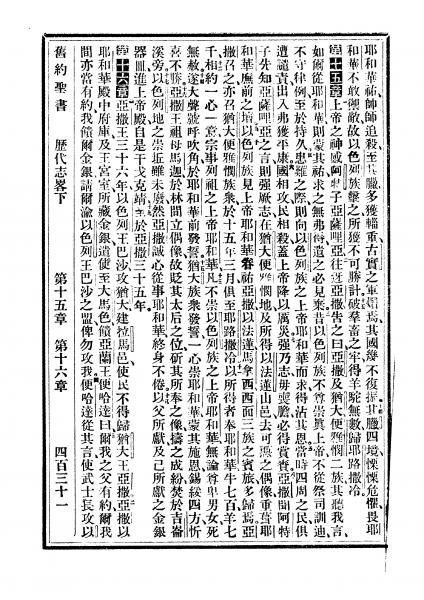 耶和華祐師師追殺至其臘多獲輜重古實之軍燼焉其國幾不復振其臘四境慄慄危懼畏耶
和華不敢禦敵故以色列族擊之所獲不可勝計破羣畜之牢得羊駝無數歸耶路撒冷
第十五章上帝之神感阿特子亞薩哩亞往迓亞撒告之曰亞撒及猶大便雅憫二族其聽我言
如爾從耶和華則蒙其祐求之無弗得遺之必見棄昔以色列族不尊崇眞上帝不從祭司訓迪
不守律例至於持久患難之際則向以色列族之上帝耶和華而求得沾其恩當時四周之民俱
遭譴責出入弗獲平康國相攻民相殺蓋上帝降以厲災强乃志毋喪膽必得賞賚亞撒聞阿特
子先知亞薩哩亞之言則强厥志在猶大便雅憫地及所得以法蓮山邑去可惡之偶像重葺耶
和華廡前之壇以色列族見上帝耶和華眷祐亞撒以法蓮馬拿西西面三族之賓旅多歸焉亞
撒召之亦召猶大便雅憫族衆於十五年三月俱至耶路撒冷以所得者奉耶和華牛七百羊七
千相約一心一意宗事列祖之上帝耶和華凡不崇以色列族之上帝耶和華無論尊卑男女死
無赦遂大聲號呼吹角於耶和華前發誓猶大族衆發誓一心崇耶和華蒙其施恩錫綏四方忻
喜不勝亞撒王祖母馬迦於林間立偶像故貶其太后之位斫其所奉之像擣之成紛焚於吉崙
溪旁以色列地之崇坵雖未廢然亞撒誠心從事耶和華終身不倦以父所獻及己所獻之金銀
器皿進上帝殿自是干戈克靖至於亞撒三十五年
第十六章亞撒王三十六年以色列王巴沙攻猶大建拉馬邑使民不得歸猶大王亞撒亞撒以
耶和華殿中府庫及王宮室所藏金銀遣使至大馬色饋亞蘭王便哈達曰爾我之父有約爾我
間亦當有約我饋爾金銀請爾渝以色列王巴沙之盟俾勿攻我便哈達從其言使武士長攻以
舊約聖書 歷代志畧下 第十五章 第十六章 四百三十一